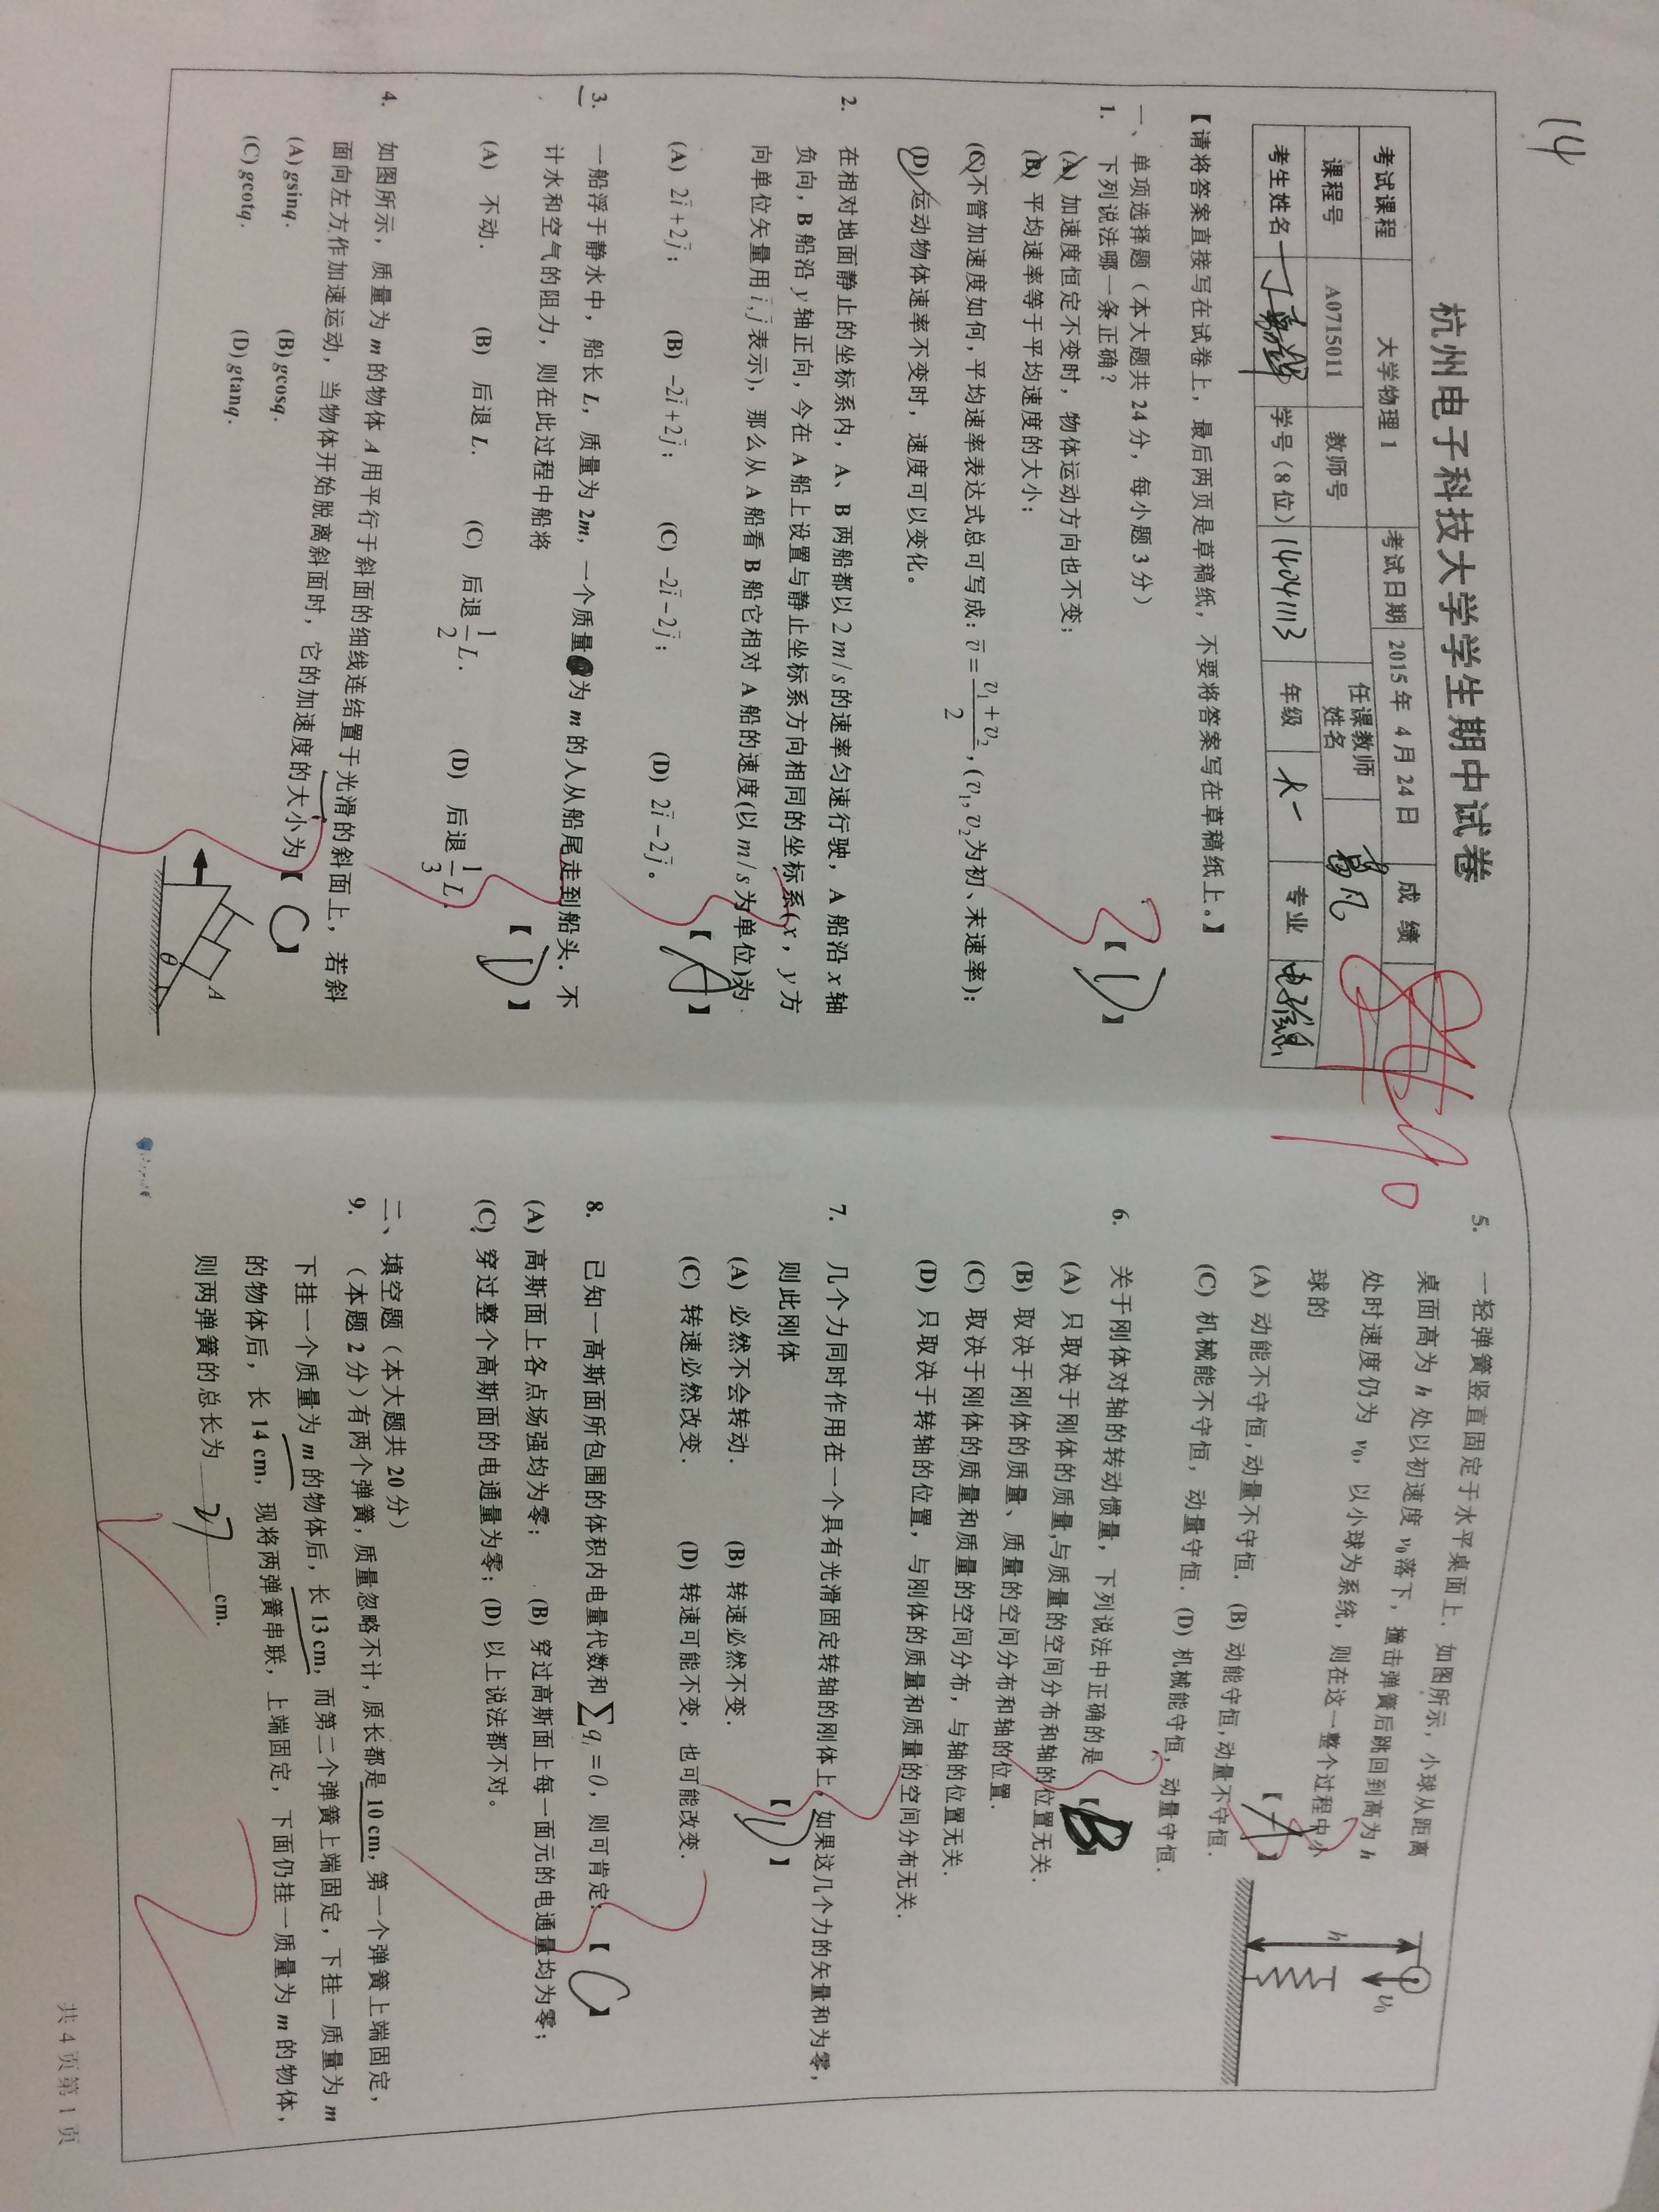 14
杭州电子科技大学学生期中试卷
考试课程 大学物理 1 考试日期 2015年 4月24日 成绩 90
课程号 A0715011 教师号 任课教师姓名 葛凡
考生姓名 丁嘉 学号(8位) 14041113 年级 大一 专业 电子信息
【请将答案直接写在试卷上，最后两页是草稿纸，不要将答案写在草稿纸上。】
一、单项选择题（本大题共 24 分，每小题 3 分）
1. 下列说法哪一条正确？ 【 D 】
(A) 加速度恒定不变时，物体运动方向也不变；
(B) 平均速率等于平均速度的大小；
(C)不管加速度如何,平均速率表达式总可写成: v̄ = (v₁ + v₂)/2 ,(v₁, v₂为初、末速率)；
(D) 运动物体速率不变时，速度可以变化。
2. 在相对地面静止的坐标系内，A、B 两船都以 2 m/s 的速率匀速行驶，A 船沿 x 轴
负向，B 船沿 y 轴正向，今在 A 船上设置与静止坐标系方向相同的坐标系(x，y 方
向单位矢量用 i̅, j̅ 表示)，那么从 A 船看 B 船它相对 A 船的速度(以 m/s 为单位)为
【 A 】
(A) 2i̅+2j̅； (B) −2i̅+2j̅； (C) −2i̅−2j̅； (D) 2i̅−2j̅。
3. 一船浮于静水中，船长 L，质量为 2m，一个质量为 m 的人从船尾走到船头．不
计水和空气的阻力，则在此过程中船将 【 D 】
(A) 不动． (B) 后退 L． (C) 后退 1/2 L． (D) 后退 1/3 L．
4. 如图所示，质量为 m 的物体 A 用平行于斜面的细线连结置于光滑的斜面上，若斜
面向左方作加速运动，当物体开始脱离斜面时，它的加速度的大小为【 C 】
(A) gsinq. (B) gcosq.
(C) gcotq. (D) gtanq.
A
θ
5. 一轻弹簧竖直固定于水平桌面上．如图所示，小球从距离
桌面高为 h 处以初速度 v₀落下，撞击弹簧后跳回到高为 h
处时速度仍为 v₀，以小球为系统，则在这一整个过程中小
球的 【 A 】
(A) 动能不守恒,动量不守恒． (B) 动能守恒,动量不守恒．
(C) 机械能不守恒，动量守恒．(D) 机械能守恒，动量守恒．
v₀
h
6. 关于刚体对轴的转动惯量，下列说法中正确的是 【 B 】
(A) 只取决于刚体的质量,与质量的空间分布和轴的位置无关．
(B) 取决于刚体的质量、质量的空间分布和轴的位置．
(C) 取决于刚体的质量和质量的空间分布，与轴的位置无关．
(D) 只取决于转轴的位置，与刚体的质量和质量的空间分布无关．
7. 几个力同时作用在一个具有光滑固定转轴的刚体上，如果这几个力的矢量和为零，
则此刚体 【 D 】
(A) 必然不会转动． (B) 转速必然不变．
(C) 转速必然改变． (D) 转速可能不变，也可能改变．
8. 已知一高斯面所包围的体积内电量代数和 ∑qᵢ = 0，则可肯定：【 C 】
(A) 高斯面上各点场强均为零； (B) 穿过高斯面上每一面元的电通量均为零；
(C) 穿过整个高斯面的电通量为零；(D) 以上说法都不对。
二、填空题（本大题共 20 分）
9. （本题 2 分）有两个弹簧，质量忽略不计，原长都是 10 cm，第一个弹簧上端固定，
下挂一个质量为 m 的物体后，长 13 cm，而第二个弹簧上端固定，下挂一质量为 m
的物体后，长 14 cm，现将两弹簧串联，上端固定，下面仍挂一质量为 m 的物体，
则两弹簧的总长为 27 cm.
共 4 页第 1 页